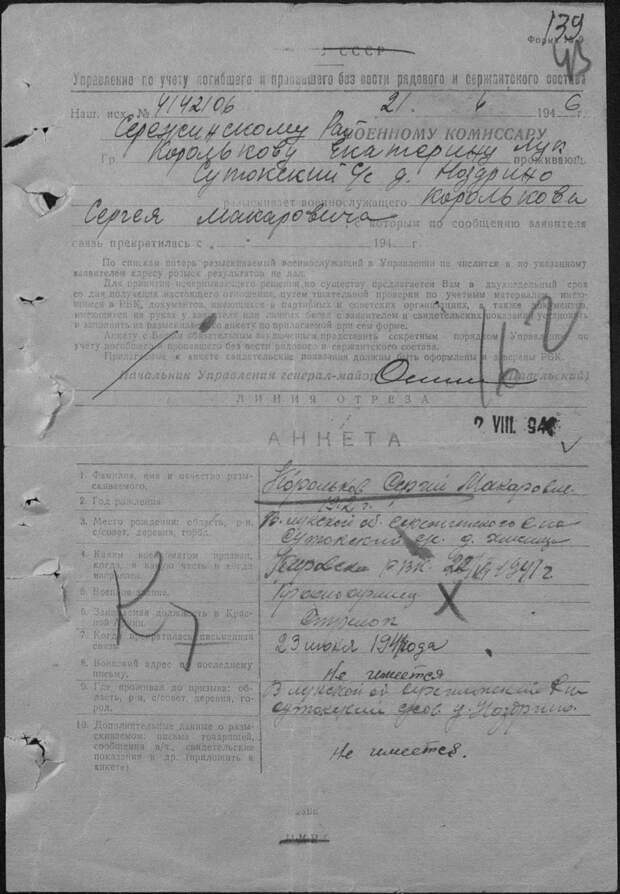 139
Форма № 9
43
СССР
Управление по учету погибшего и пропавшего без вести рядового и сержантского состава
Наш. исх. № 4142106 21. 4 1946 г.
Сережинскому Рай ВОЕННОМУ КОМИССАРУ
Гр. Королькову Екатерину Лук проживающ.
Сутокский с/с д. Ноздрино
разыскивает военнослужащего Королькова
Сергея Макаровича с которым по сообщению заявителя
связь прекратилась с „ - “ 194 г.
По спискам потерь разыскиваемый военнослужащий в Управлении не числится и по указанному
заявителем адресу розыск результатов не дал.
Для принятия исчерпывающего решения по существу предлагается Вам в двухнедельный срок
со дня получения настоящего отношения, путем тщательной проверки по учетным материалам, имею-
щимся в РВК, документов, имеющихся в партийных и советских организациях, а также писем,
имеющихся на руках у заявителя или личных бесед с заявителем и свидетельских показаний установить
и заполнить на разыскиваемого анкету по прилагаемой при сем форме.
Анкету с Вашим заключением представить секретным порядком Управлению по
учету погибшего и пропавшего без вести рядового и сержантского состава.
Прилагаемые к анкете свидетельские показания должны быть оформлены и заверены РВК.
Начальник Управления генерал-майор
ЛИНИЯ ОТРЕЗА
2 VIII. 194
АНКЕТА
1. Фамилия, имя и отчество разы-
скиваемого. Корольков Сергей Макарович
2. Год рождения
3. Место рождения: область, р-н,
с/совет, деревня, город. В-лукской об.
Сутокский с/с д.
4. Каким военкоматом призван,
когда, в какую часть и когда
направлен. РВК 1941 г
5. Военное звание. Красноармеец
6. Занимаемая должность в Крас-
ной Армии. Стрелок
7. Когда прекратилась письменная
связь 23 июня 1941 года
8. Воинский адрес по последнему
письму. Не имеется
9. Где проживал до призыва: об-
ласть, р-н, с/совет, деревня, го-
род. В лукской об Сережинский р-на
Сутокский с/сов д. Ноздрино.
10. Дополнительные данные о разы-
скиваемом: письма товарищей,
сообщения в/ч., свидетельские
показания и др. (приложить к
анкете) Не имеется.
К 7